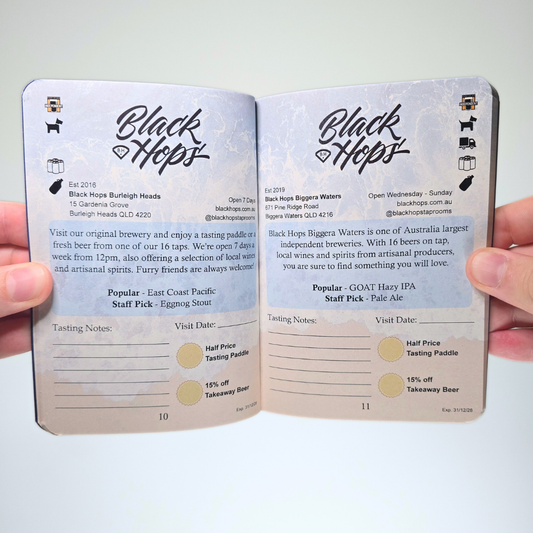 Black
BH Hops
Est 2016
Black Hops Burleigh Heads
15 Gardenia Grove
Burleigh Heads QLD 4220
Open 7 Days
blackhops.com.au
@blackhopstaprooms
Visit our original brewery and enjoy a tasting paddle or a
fresh beer from one of our 16 taps. We're open 7 days a
week from 12pm, also offering a selection of local wines
and artisanal spirits. Furry friends are always welcome!
Popular - East Coast Pacific
Staff Pick - Eggnog Stout
Tasting Notes:
Visit Date:
Half Price
Tasting Paddle
15% off
Takeaway Beer
10
Black
BH Hops
Est 2019
Black Hops Biggera Waters
671 Pine Ridge Road
Biggera Waters QLD 4216
Open Wednesday - Sunday
blackhops.com.au
@blackhopstaprooms
Black Hops Biggera Waters is one of Australia largest
independent breweries. With 16 beers on tap,
local wines and spirits from artisanal producers,
you are sure to find something you will love.
Popular - GOAT Hazy IPA
Staff Pick - Pale Ale
Tasting Notes:
Visit Date:
Half Price
Tasting Paddle
15% off
Takeaway Beer
11
Exp. 31/12/26